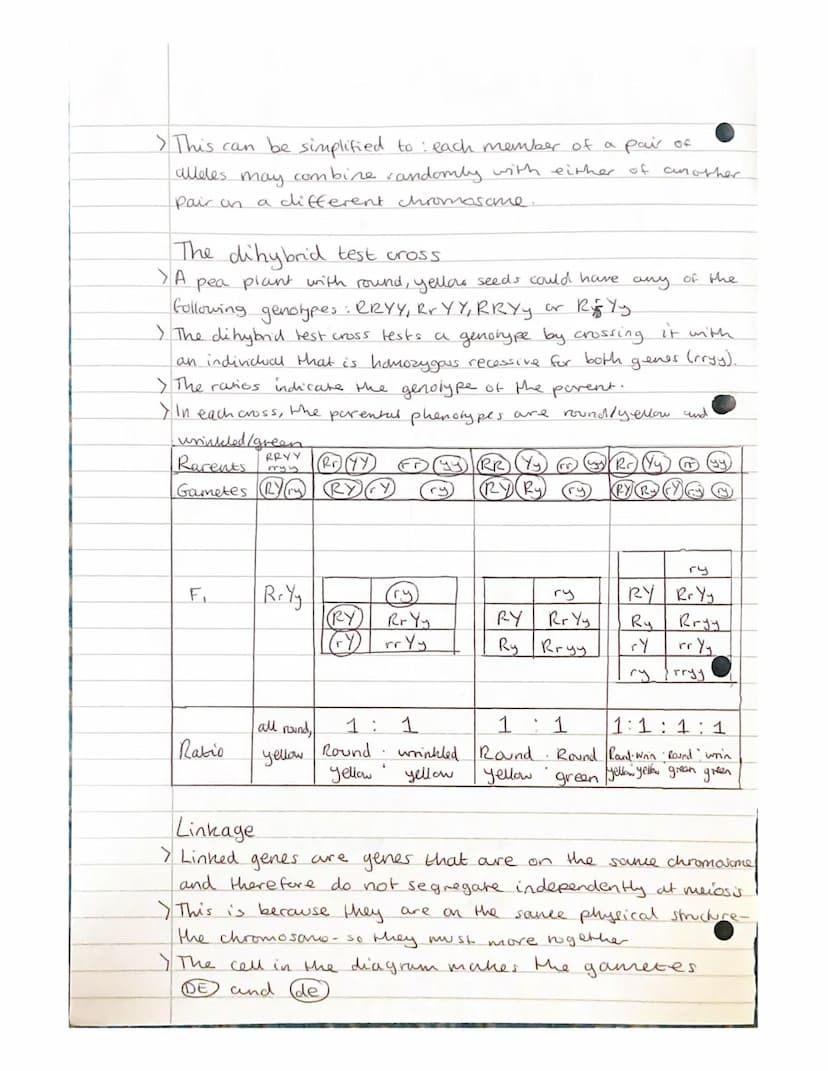 > This can be simplified to : each member of a pair of
alleles may combine randomly with either of another
pair on a different chromosome.
The dihybrid test cross
> A pea plant with round, yellow seeds could have any of the
following genotypes : RRYY, RrYY, RRYy or RrYy
> The dihybrid test cross tests a genotype by crossing it with
an individual that is homozygous recessive for both genes (rryy).
> The ratios indicate the genotype of the parent.
> In each cross, the parental phenotypes are round/yellow and
wrinkled/green
Parents RRYY rryy Rr YY rr yy RR Yy rr yy Rr Yy rr yy
Gametes RY ry RY rY ry RY Ry ry RY Ry rY ry ry
F₁ RrYy
ry
RY RrYy
rY rrYy
ry
RY RrYy
Ry Rryy
ry
RY RrYy
Ry Rryy
rY rrYy
ry rryy
Ratio
all round,
yellow
1 : 1
Round : wrinkled
yellow yellow
1 : 1
Round : Round
yellow green
1:1:1:1
Round : wrin : round : wrin
yellow yellow green green
Linkage
> Linked genes are genes that are on the same chromosome
and therefore do not segregate independently at meiosis
> This is because they are on the same physical structure-
the chromosome - so they must move together
> The cell in the diagram makes the gametes
DE and de